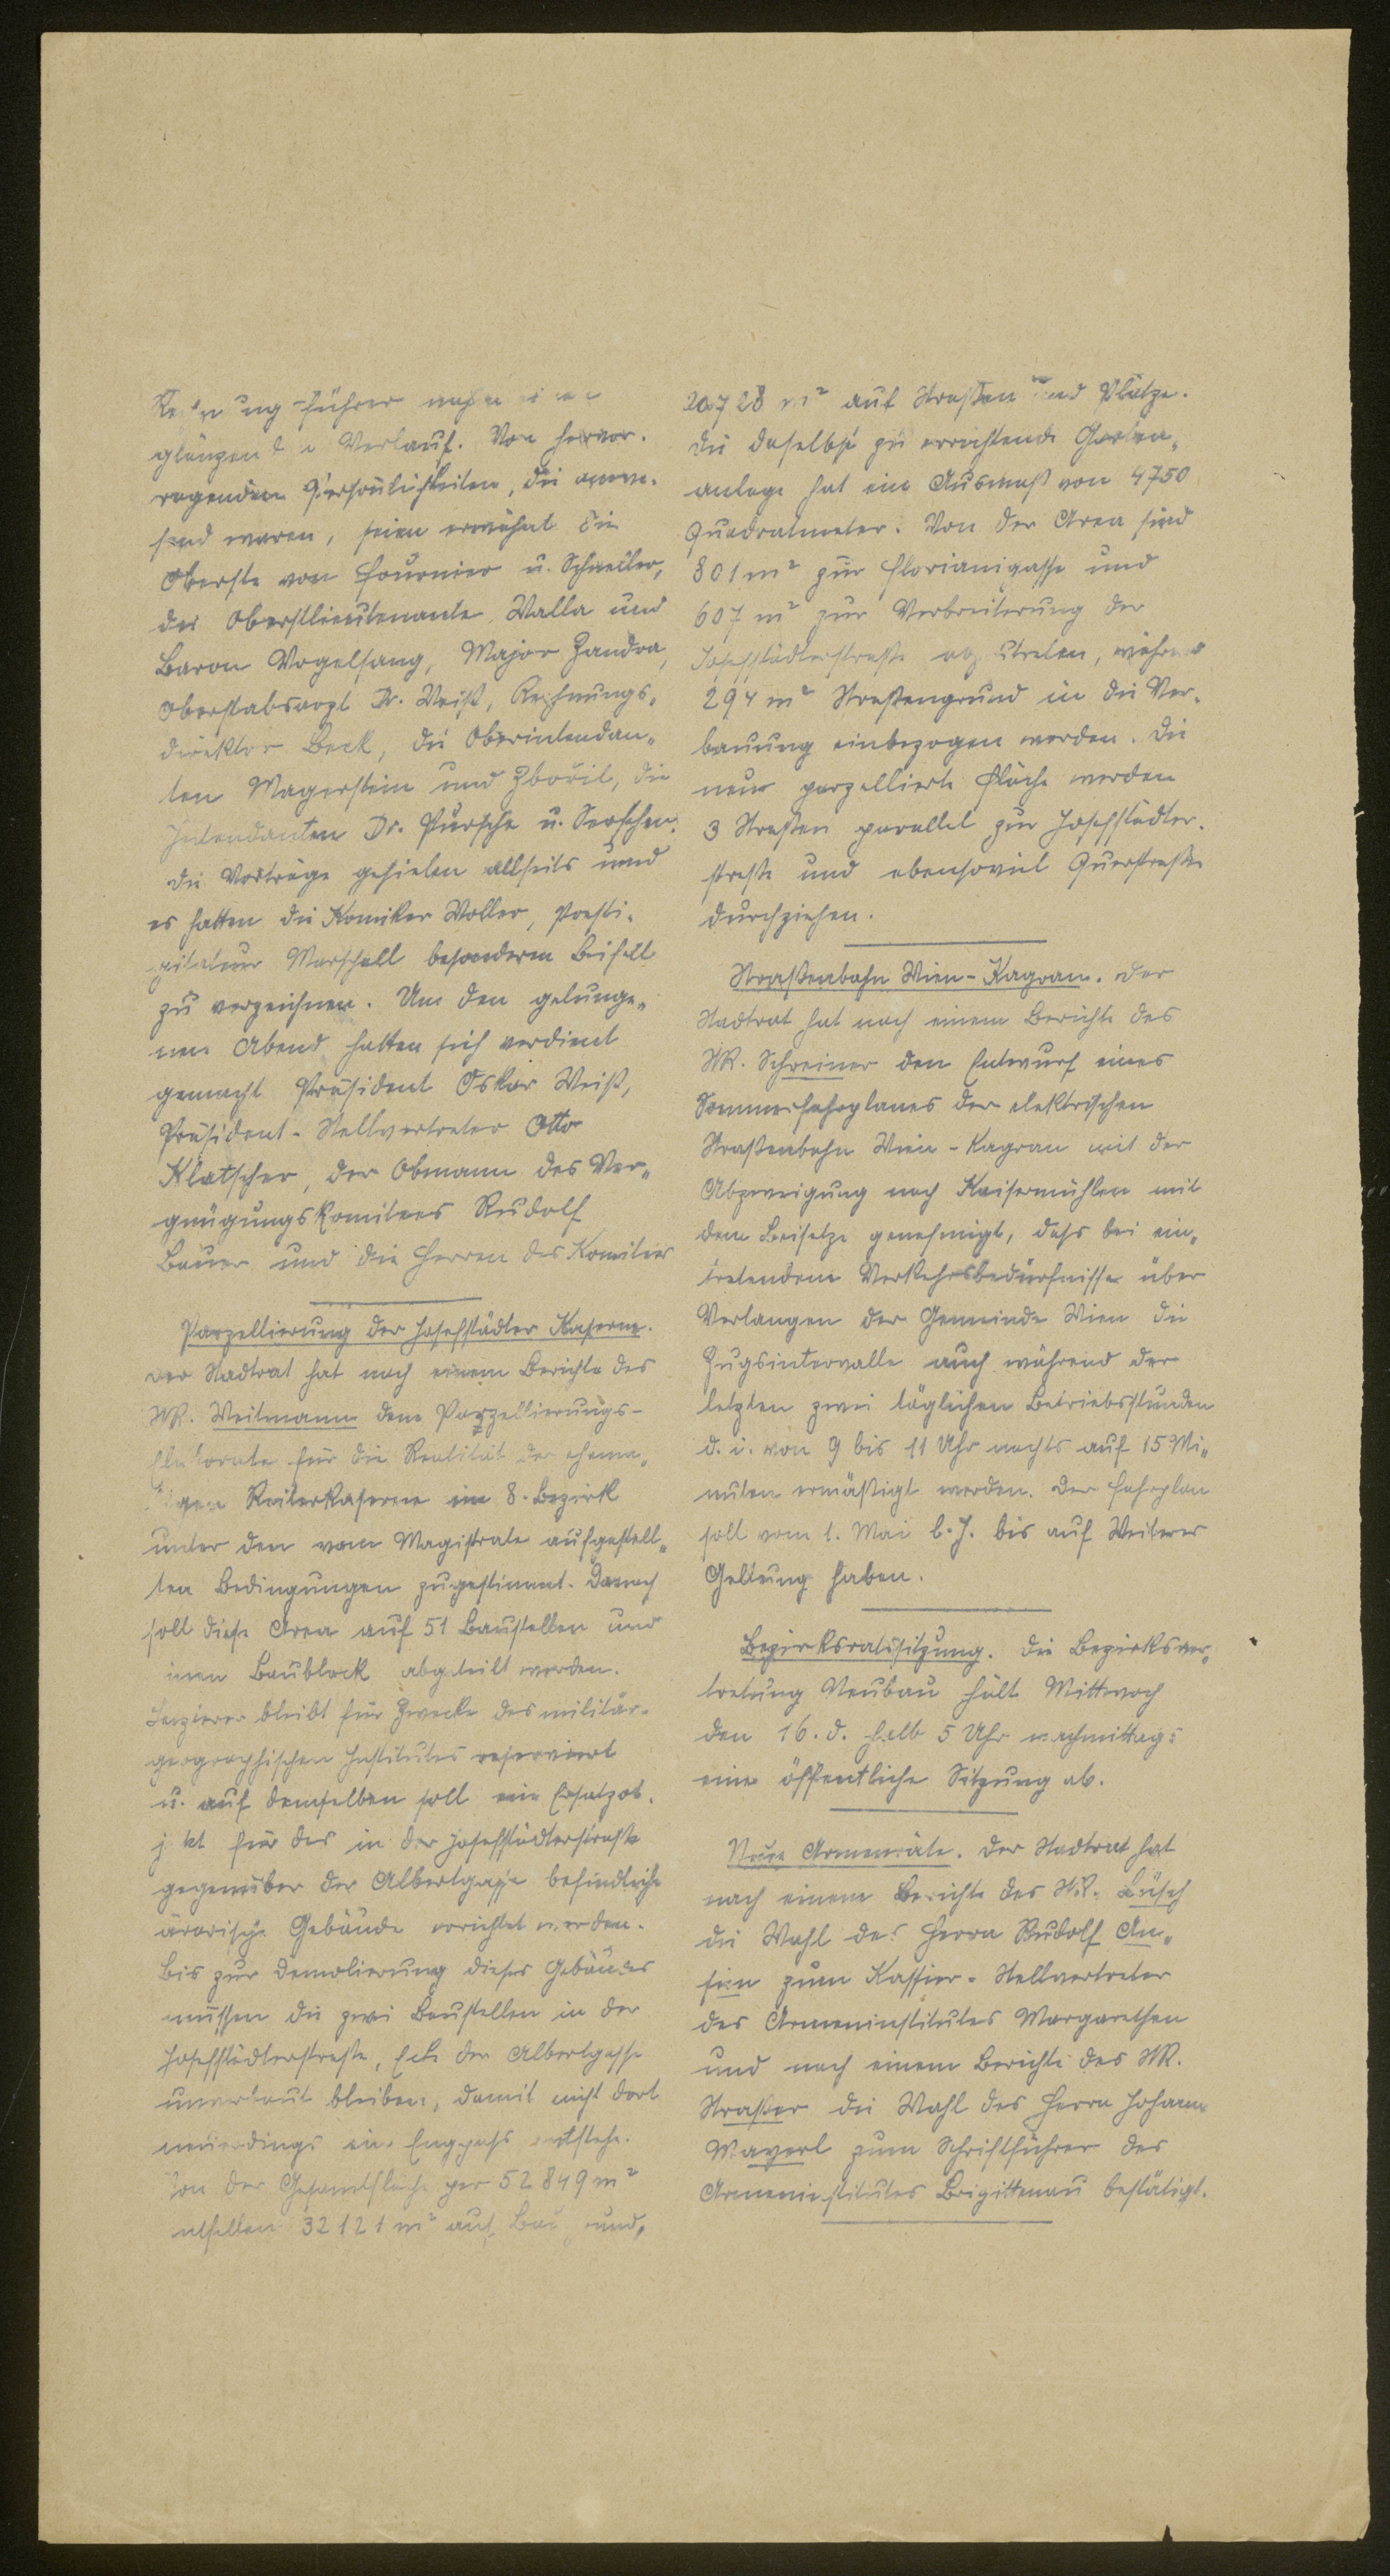 führer
glänzenden Verlauf. Von hervor-
ragenden Persönlichkeiten, die anwe-
send waren, seien erwähnt die
Oberste von Fournier u. Schneller,
der Oberstlieutenante Walla und
Baron Vogelsang, Major Zandra,
Oberstabsarzt Dr. Weiß, Rechnungs-
direktor Beck, die Oberintendan-
ten Magerstein und Zbořil, die
Intendanten Dr. Pursche u.
die Vorträge gefielen allseits und
es hatten die Komiker Woller, Presti-
gitateur Marschall besonderen Beifall
zu verzeichnen. Um den gelunge-
nen Abend hatten sich verdient
gemacht Präsident Oskar Weiß,
Präsident-Stellvertreter Otto
Klatscher, der Obmann des Ver-
gnügungskomitees Rudolf
Bauer und die Herren des Komitees
Parzellierung der Josefstädter Kaserne.
Der Stadtrat hat nach einem Berichte des
StR. Weitmann dem Parzellierungs-
Elaborate für die Realität der ehema-
ligen Reiterkaserne im 8. Bezirk
unter den vom Magistrate aufgestell-
ten Bedingungen zugestimmt. Danach
soll diese Area auf 51 Baustellen und
einen Baublock abgeteilt werden.
Letzterer bleibt für Zwecke des militär-
geographischen Institutes reserviert
u. auf demselben soll ein Ersatzob-
jekt für das in der Josefstädterstraße
gegenüber der Albertgasse befindliche
ärarische Gebäude errichtet werden.
Bis zur Demolierung dieses Gebäudes
müssen die zwei Baustellen in der
Josefstädterstraße, Ecke der Albertgasse
unverbaut bleiben, damit nicht dort
neuerdings ein Engpaß entstehe.
Von der Gesamtfläche per 52.849 m²
entfallen 32121 m² auf Baugrund,
20728 m² auf Straßen und Plätze.
Die daselbst zu errichtende Garten-
anlage hat ein Ausmaß von 4750
Quadratmeter. Von der Area sind
801 m² zur Florianigasse und
607 m² zur Verbreiterung der
Josefstädterstraße abzutreten, während
294 m² Straßengrund in die Ver-
bauung einbezogen werden. Die
neue parzellierte Fläche werden
3 Straßen parallel zur Josefstädter-
straße und ebensoviel Querstraßen
durchziehen.
Straßenbahn Wien-Kagran. Der
Stadtrat hat nach einem Berichte des
StR. Schreiner den Entwurf eines
Sommerfahrplanes der elektrischen
Straßenbahn Wien-Kagran mit der
Abzweigung nach Kaisermühlen mit
dem Beisatze genehmigt, daß bei ein-
tretendem Verkehrsbedürfnisse über
Verlangen der Gemeinde Wien die
Zugsintervalle auch während der
letzten zwei täglichen Betriebsstunden
d. i. von 9 bis 11 Uhr nachts auf 15 Mi-
nuten ermäßigt werden. Der Fahrplan
soll vom 1. Mai l. J. bis auf Weiteres
Geltung haben.
Bezirksratssitzung. Die Bezirksver-
tretung Neubau hält Mittwoch
den 16. d. halb 5 Uhr nachmittags
eine öffentliche Sitzung ab.
Neue Armenräte. Der Stadtrat hat
nach einem Berichte des StR. Büsch
die Wahl des Herrn Rudolf An-
sion zum Kassier-Stellvertreter
des Armeninstitutes Margarethen
und nach einem Berichte des StR.
Straßer die Wahl des Herrn Johann
Mayerl zum Schriftführer des
Armeninstitutes Brigittenau bestätigt.